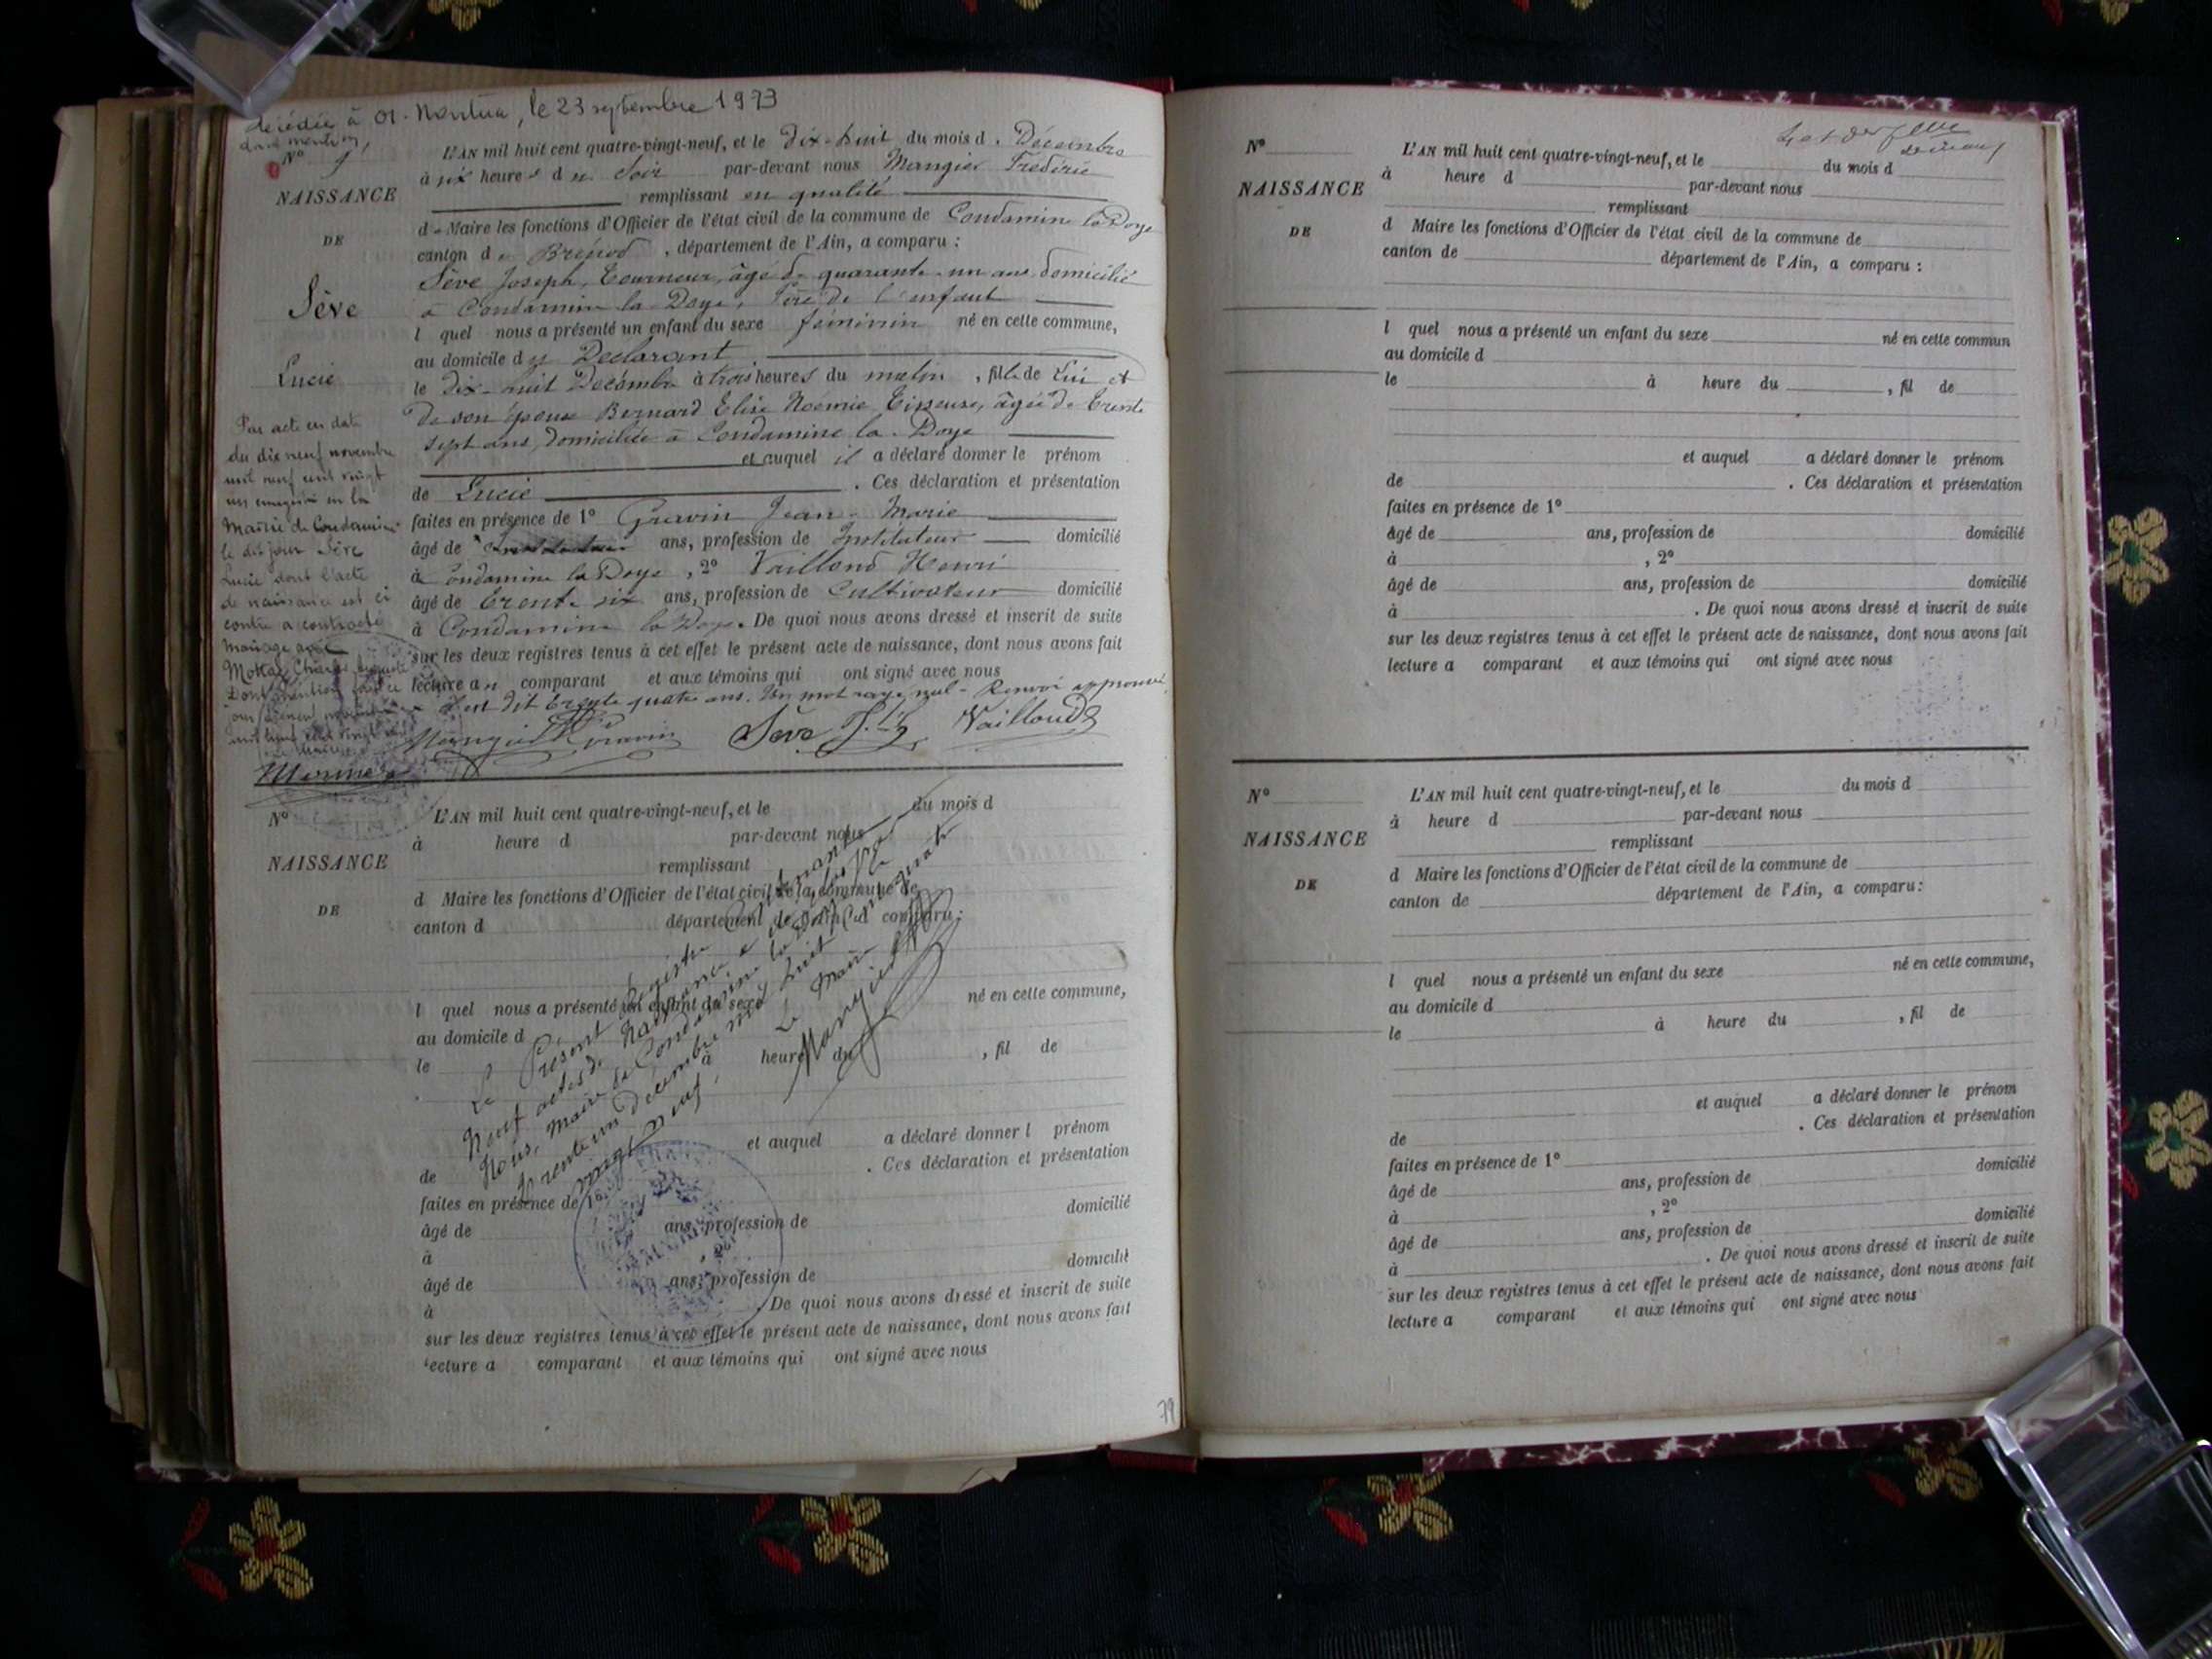 décédée à 01 - Nantua, le 23 septembre 1973
dont mention,
Nº 9
NAISSANCE
DE
Sève
Lucie
L'AN mil huit cent quatre-vingt-neuf, et le Dix-huit du mois d. Décembre
à six heures du Soir par-devant nous Mangier Frédéric
remplissant en qualité
de Maire les fonctions d'Officier de l'état civil de la commune de Condamine la Doye
canton de Brénod, département de l'Ain, a comparu :
Sève Joseph, Tourneur, âgé de quarante-un ans domicilié
à Condamine la Doye, Père de l'enfant
l quel nous a présenté un enfant du sexe féminin né en cette commune,
au domicile du Declarant
le Dix-huit Décembre à trois heures du matin, fille de Lui et
De son épouse Bernard Elise Noémie Tisseuse, âgée de trente
sept ans, domiciliée à Condamine la Doye
et auquel il a déclaré donner le prénom
de Lucie . Ces déclaration et présentation
faites en présence de 1º Gravin Jean-Marie
âgé de ans, profession de Instituteur domicilié
à Condamine la Doye, 2º Vailloud Henri
âgé de trente six ans, profession de Cultivateur domicilié
à Condamine la Doye. De quoi nous avons dressé et inscrit de suite
sur les deux registres tenus à cet effet le présent acte de naissance, dont nous avons fait
lecture au comparant et aux témoins qui ont signé avec nous
est dit trente quatre ans. Un mot rayé nul - Renvoi approuvé
Mangier Gravin Sève Vailloud
Par acte en date
du dix neuf novembre
mil neuf cent vingt
en la
Mairie de Condamine
le dit jour Sève
Lucie dont l'acte
de naissance est ci
contre a contracté
mariage avec
Mottaz Charles Auguste
Dont mention faite ce
jour
mil neuf cent vingt
Nº
NAISSANCE
DE
L'AN mil huit cent quatre-vingt-neuf, et le du mois d
à heure d par-devant nous
remplissant
d Maire les fonctions d'Officier de l'état civil de la commune de
canton d département de l'Ain, a comparu :
l quel nous a présenté un enfant du sexe né en cette commune,
au domicile d
le à heure du , fil de
et auquel a déclaré donner l prénom
de . Ces déclaration et présentation
faites en présence de 1º
âgé de ans, profession de domicilié
à , 2º
âgé de ans, profession de domicilié
à . De quoi nous avons dressé et inscrit de suite
sur les deux registres tenus à cet effet le présent acte de naissance, dont nous avons fait
lecture a comparant et aux témoins qui ont signé avec nous
Le Présent Registre contenant
Neuf actes de Naissance a été clos par
Nous, Maire de Condamine la Doye le
trente un Décembre mil huit cent quatre
vingt neuf, Le Maire
Mangier
79
Nº
NAISSANCE
DE
L'AN mil huit cent quatre-vingt-neuf, et le du mois d
à heure d par-devant nous
remplissant
d Maire les fonctions d'Officier de l'état civil de la commune de
canton de département de l'Ain, a comparu :
l quel nous a présenté un enfant du sexe né en cette commun
au domicile d
le à heure du , fil de
et auquel a déclaré donner le prénom
de . Ces déclaration et présentation
faites en présence de 1º
âgé de ans, profession de domicilié
à , 2º
âgé de ans, profession de domicilié
à . De quoi nous avons dressé et inscrit de suite
sur les deux registres tenus à cet effet le présent acte de naissance, dont nous avons fait
lecture a comparant et aux témoins qui ont signé avec nous
Nº
NAISSANCE
DE
L'AN mil huit cent quatre-vingt-neuf, et le du mois d
à heure d par-devant nous
remplissant
d Maire les fonctions d'Officier de l'état civil de la commune de
canton de département de l'Ain, a comparu :
l quel nous a présenté un enfant du sexe né en cette commune,
au domicile d
le à heure du , fil de
et auquel a déclaré donner le prénom
de . Ces déclaration et présentation
faites en présence de 1º
âgé de ans, profession de domicilié
à , 2º
âgé de ans, profession de domicilié
à . De quoi nous avons dressé et inscrit de suite
sur les deux registres tenus à cet effet le présent acte de naissance, dont nous avons fait
lecture a comparant et aux témoins qui ont signé avec nous